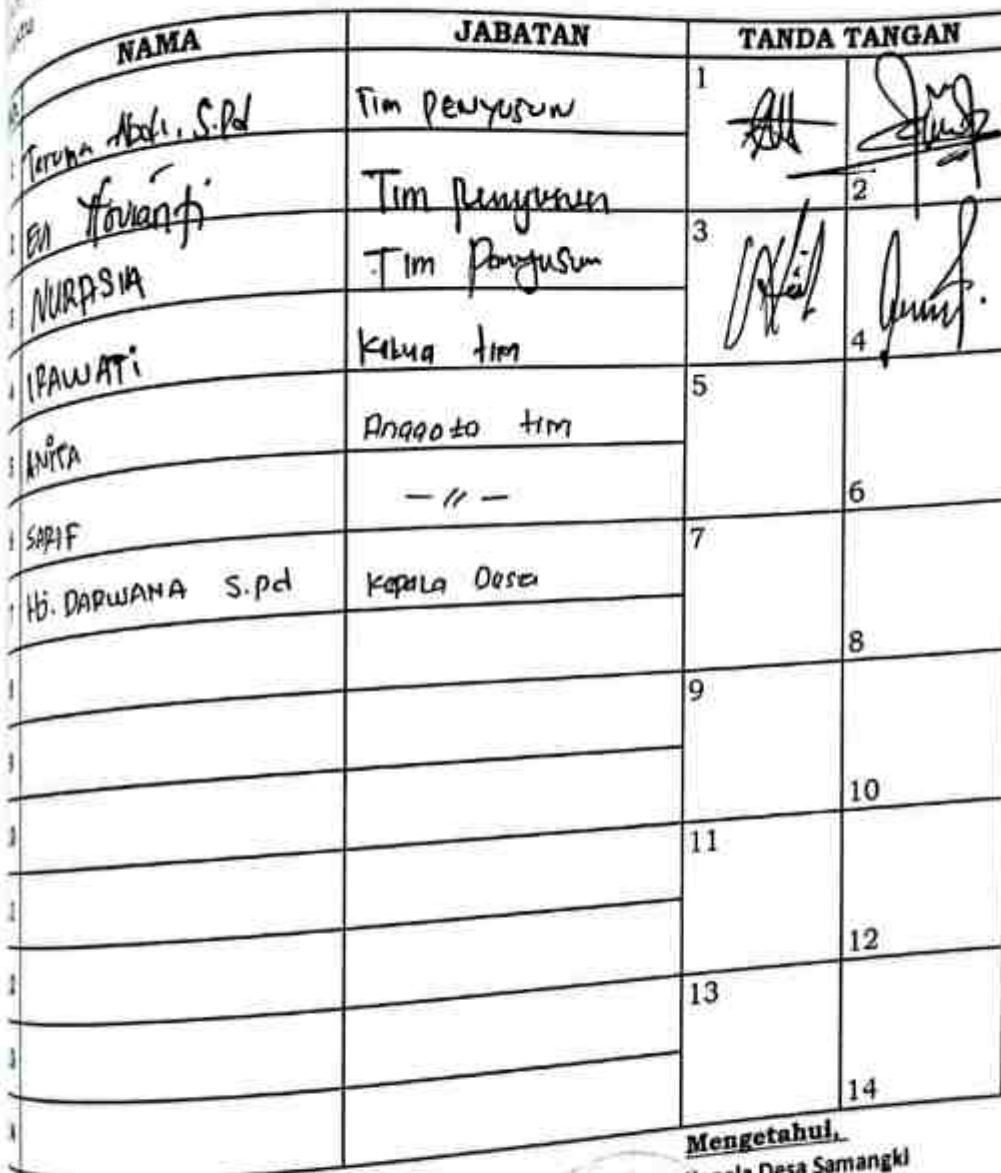 NAMA JABATAN TANDA TANGAN
1 Abdi, S.Pd Tim Penyusun 1
2 Novianti Tim Penyusun 2
3 NURASIA Tim Penyusun 3
4 IRAWATi Ketua tim 4
5 ANITA Anggota tim 5
6 SARIF — // — 6
7 Hj. DARWANA S.Pd Kepala Desa 7
8
9
10
11
12
13
14
Mengetahui,
Kepala Desa Samangki